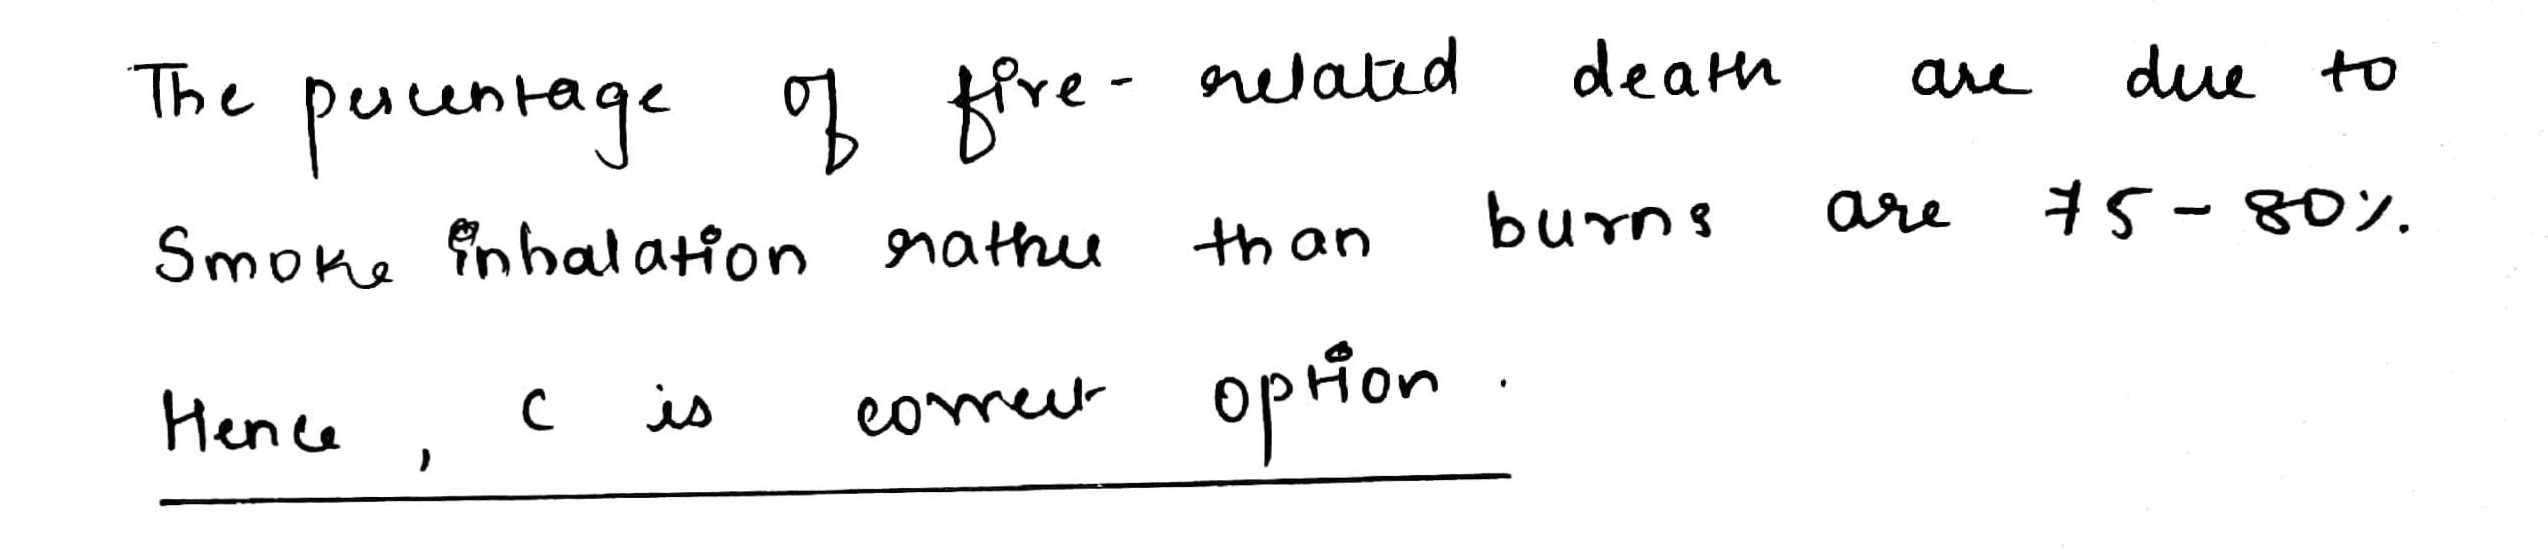 The percentage of fire-related death are due to
Smoke inhalation rather than burns are 75-80%.
Hence, C is correct option.